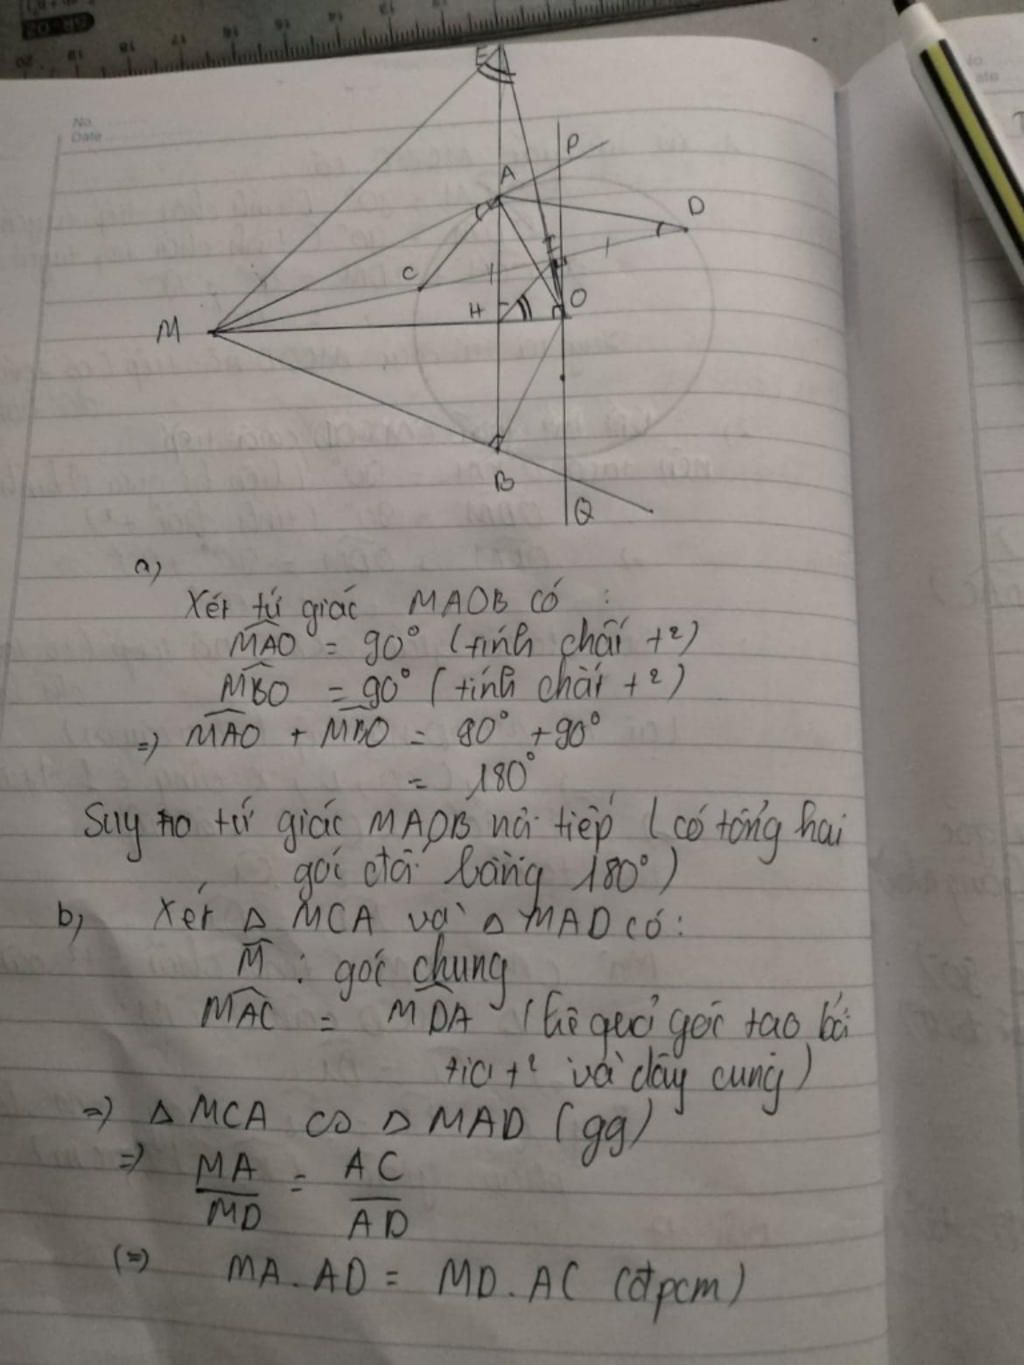 No.
Date
E
A
P
D
C
H
O
M
B
Q
a)
Xét tứ giác MAOB có :
MAO = 90° (tính chất t²)
MBO = 90° (tính chất t²)
=> MAO + MBO = 80° + 90°
= 180°
Suy ra tứ giác MAOB nội tiếp ( có tổng hai
góc đối bằng 180°)
b, Xét △ MCA và △ MAD có:
M : góc chung
MAC = MDA (hệ quả góc tạo bởi
tia t² và dây cung)
=> △ MCA ∽ △ MAD (gg)
=> MA/MD = AC/AD
(=) MA.AD = MD.AC (đpcm)